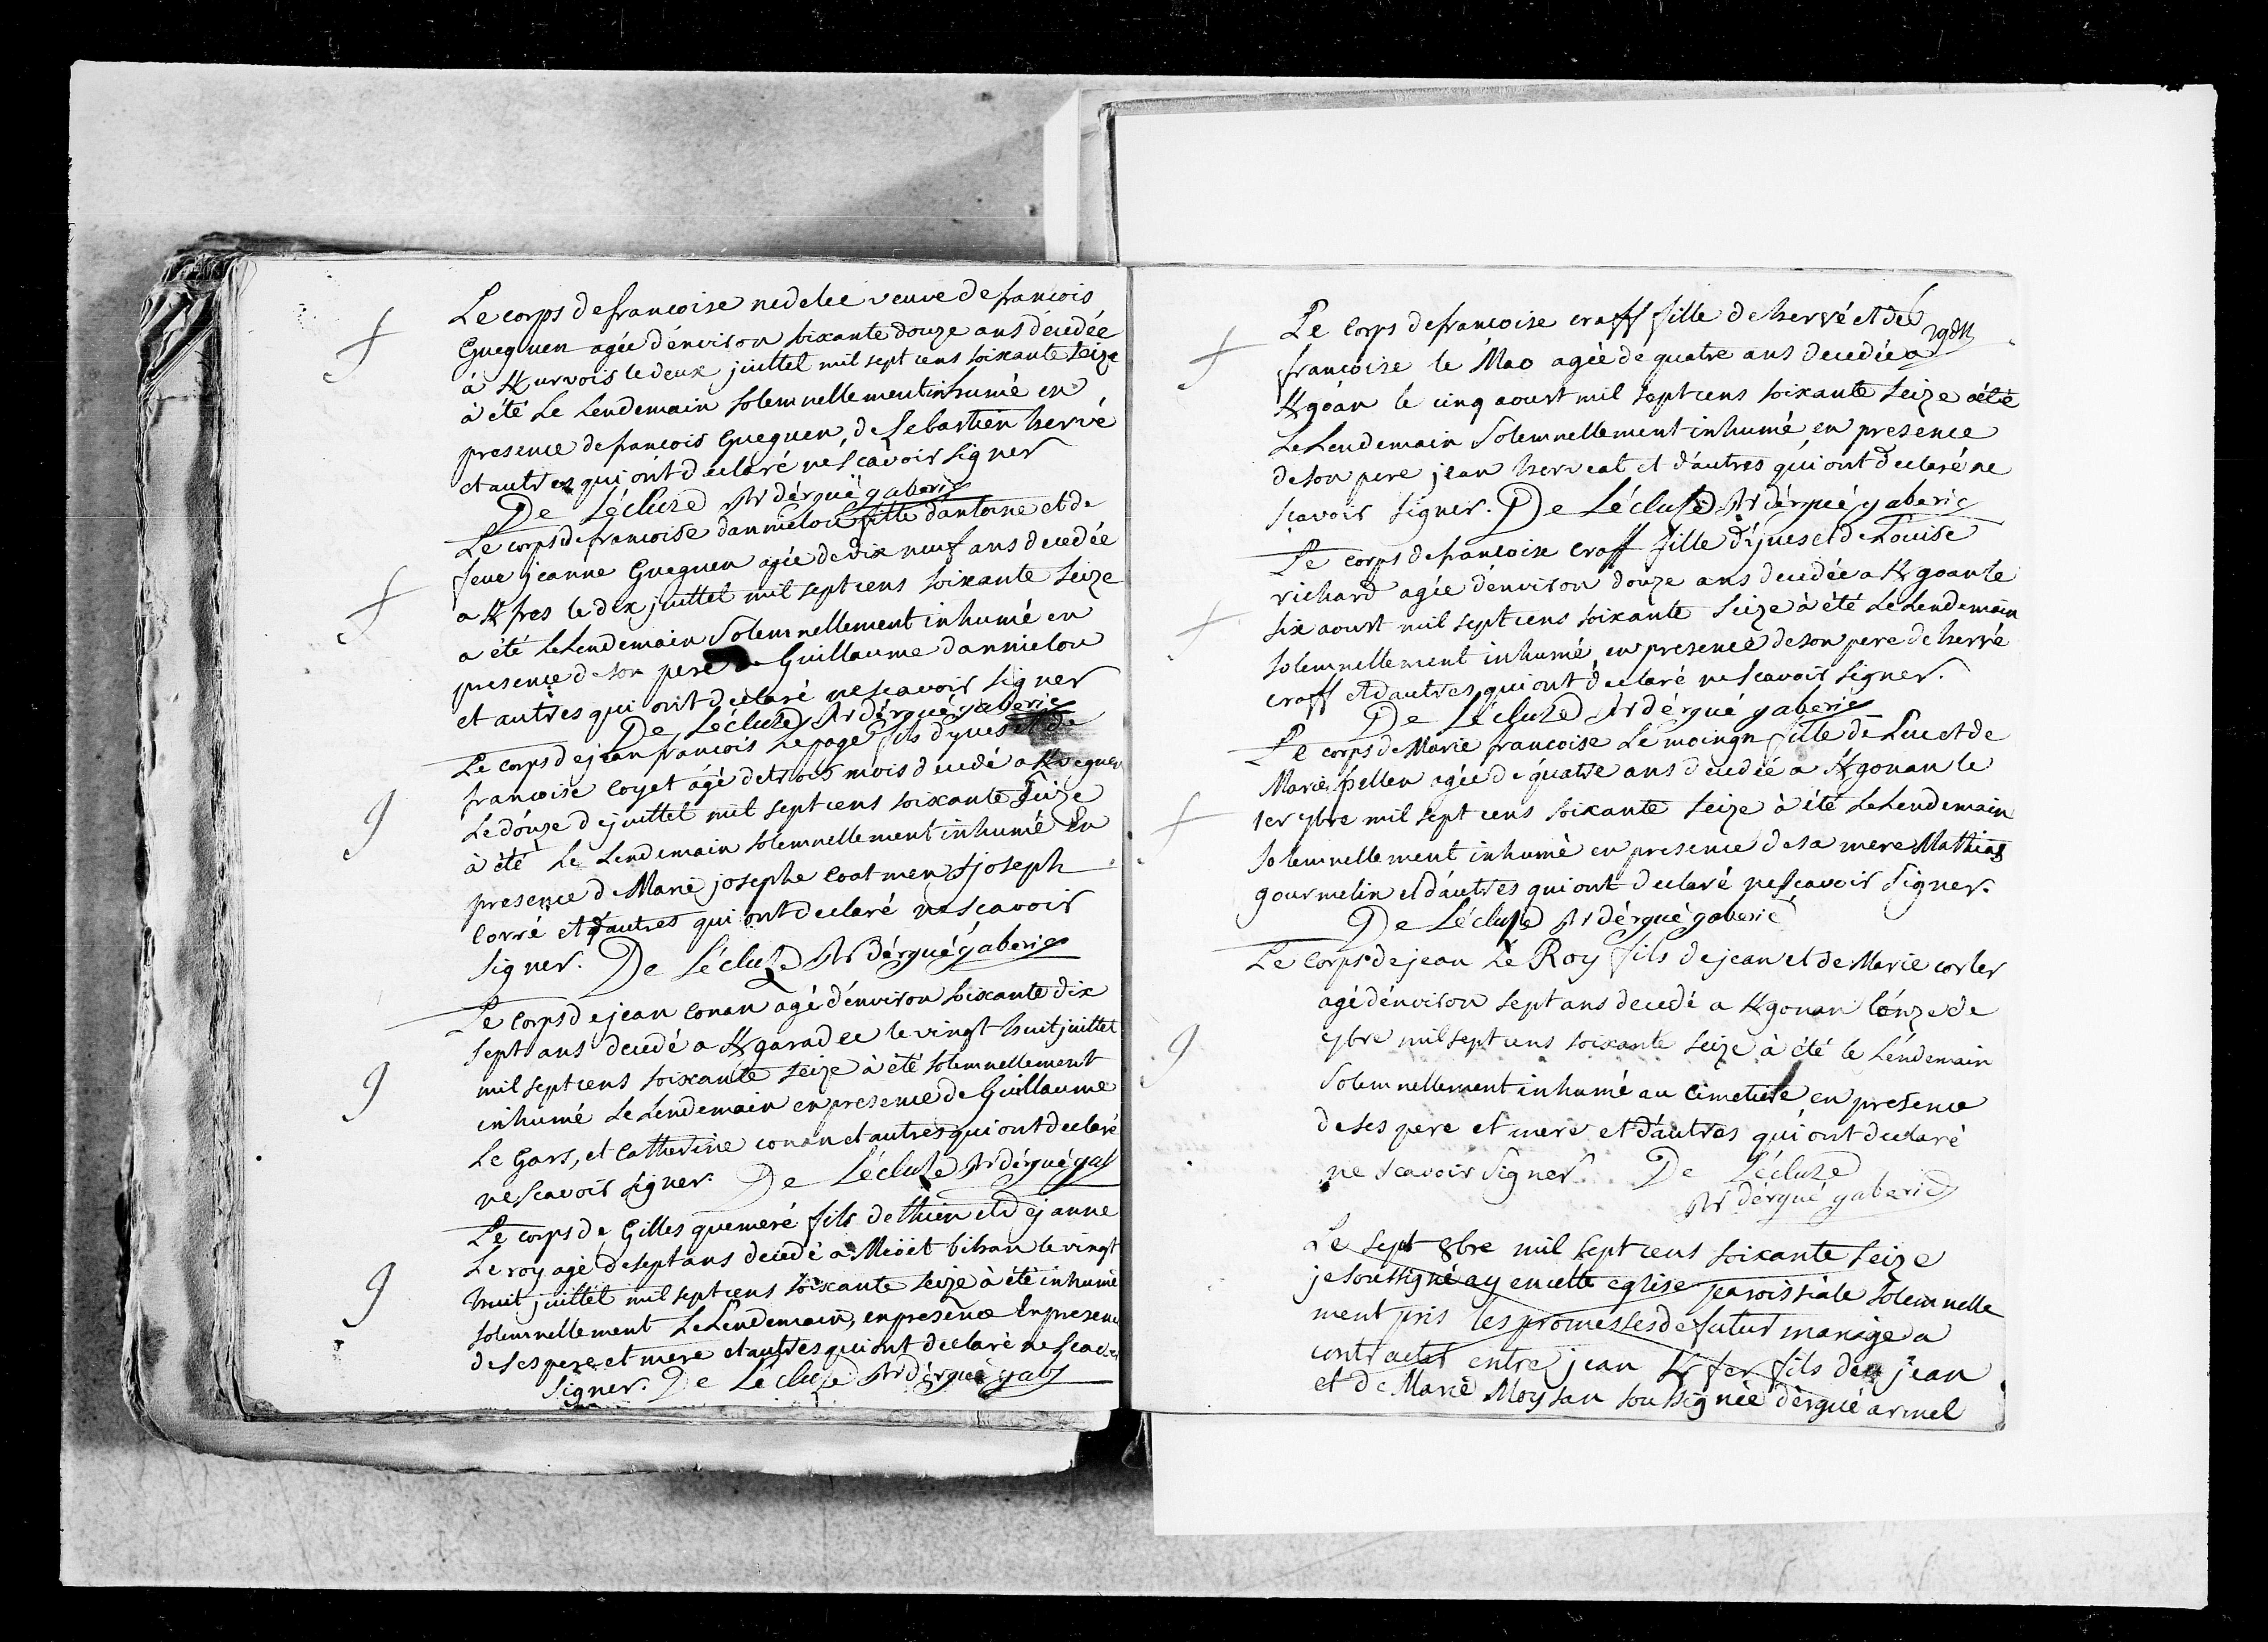 Le corps de francoise nedelec veuve de francois
Gueguen agée d'environ soixante douze ans décédée
à Kurvois le deux juillet mil sept cens soixante seize
à été Le Lendemain solemnellement inhumé en
presence de francois Gueguen, de Sebastien hervé
et autres qui ont déclaré ne scavoir signer
De Lécluze Rr dérgué gaberic
Le corps de francoise dannielou fille d'antoine et de
feue jeanne Gueguen agée de dix neuf ans decedée
a K fres le dix juillet mil sept cens soixante seize
a été Le Lendemain Solemnellement inhumé en
presence de son pere Guillaume dannielou
et autres qui ont declaré ne scavoir signer
De Lécluze Rr dérgué gaberic
Le corps de jean francois Le page fils d'yves et de
francoise coyet agé de trois mois decedé a
Le douze de juillet mil sept cens soixante seize
à été Le Lendemain solemnellement inhumé En
presence de Marie josephe coatmen joseph
Corré et d'autres qui ont declaré ne scavoir
signer. De Lécluze Rr dérgué gaberic
Le corps de jean conan agé d'environ soixante dix
sept ans decedé a K garadec le vingt huit juillet
mil sept cens soixante seize à été solemnellement
inhumé Le Lendemain en presence de Guillaume
Le Gars, et Catherine conan et autres qui ont declaré
ne scavoir signer. De Lécluze Rr dérgué gab
Le corps de Gilles quemeré fils de thien et de janne
Le roy agé de sept ans decedé a Meöet bihan le vingt
huit juillet mil sept cens soixante seize à été inhumé
solemnellement Le Lendemain, en presence En presence
de ses pere et mere et autres qui ont declaré ne scav
Signer. De Lécluze Rr dérgué gab
Le Corps de francoise craff fille de hervé et de
francoise le Mao agée de quatre ans decedée a
K goan le cinq aoust mil sept cens soixante seize a été
Le Lendemain Solemnellement inhumé en presence
de son pere jean herveat et d'autres qui ont declaré ne
scavoir signer. De Lécluze Rr dérgué gaberic
Le corps de francoise craff fille d'yves et de Louise
richard agée d'environ douze ans decedée a K goan le
six aoust mil sept cens soixante seize à été Le Lendemain
solemnellement inhumé en presence de son pere de hervé
craff et d'autres qui ont declaré ne scavoir signer.
De Lécluze Rr dérgué gaberic
Le corps de Marie francoise Le moingn fille de Luc et de
Marie pellen agée de quatre ans decedée a K gonan le
1er 7bre mil sept cens soixante seize à été Le Lendemain
solemnellement inhumé en presence de sa mere Mathias
gourmelin et d'autres qui ont declaré ne scavoir signer.
De Lécluze Rr dérgué gaberic
Le Corps de jean Le Roy fils de jean et de Marie corler
agé d'environ sept ans decedé a K gonan l'onze de
7bre mil sept cens soixante seize à été le Lendemain
Solemnellement inhumé au cimetiere en presence
de ses pere et mere et d'autres qui ont declaré
ne scavoir signer. De Lécluze
Rr dérgué gaberic
Le sept 8bre mil sept cens soixante seize
je soussigné ay en cette eglise paroissiale solemnelle
ment pris les promesses de futur mariage a
contracter entre jean K fer fils de jean
et de Marie Moysan soussignée dergué armel